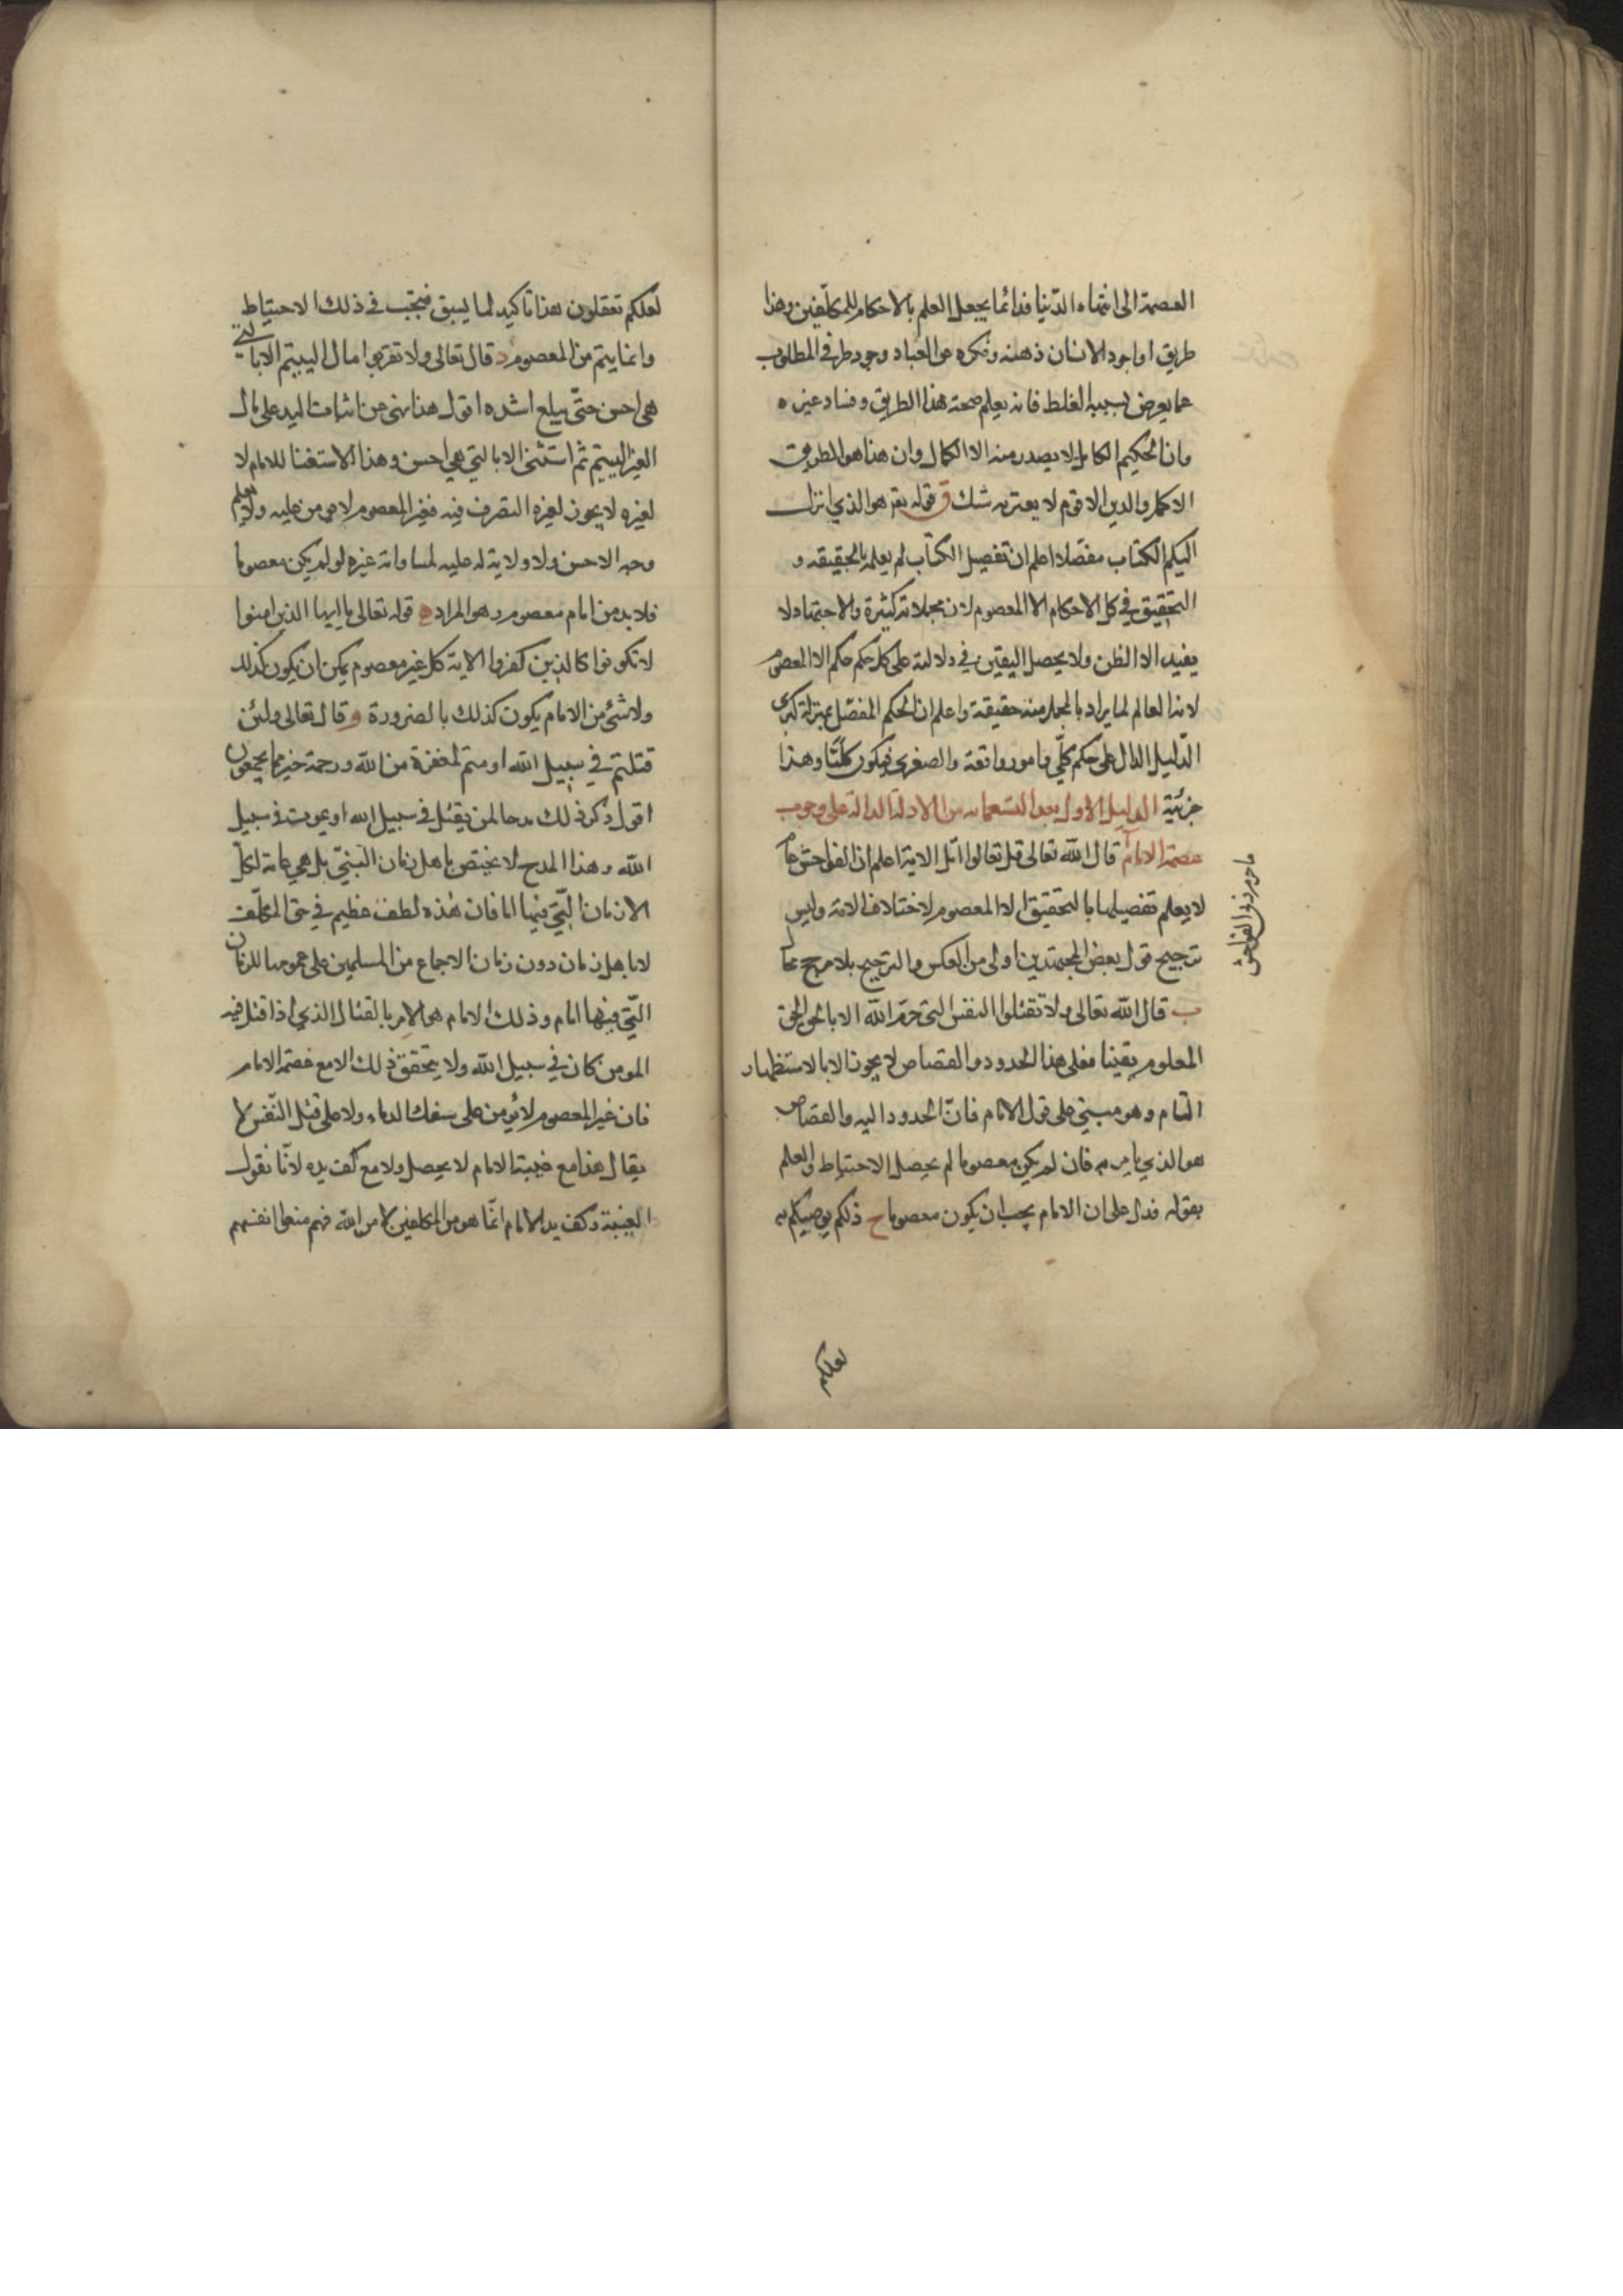 العصمة الى انتهاء الدنيا فدائما يجعل العلم بالاحكام للمكلفين وهذا
طريق اذا جود الانسان ذهنه وفكره عن العباد وجود طر في المطلوب
عما يعرض بسببه الغلط فانه يعلم صحة هذا الطريق وفساد غيره
وان الحكيم الكامل لا يصدر منه الا الكمال وان هذا هو الطريق
الاكمل والدين الاقوم لا يعتريه شك ق قوله تع هو الذي انزل
اليكم الكتاب مفصلا اعلم ان تفصيل الكتاب لم يعلم بالحقيقة و
التحقيق في كل الاحكام الا المعصوم لان مجملاته كثيرة والاجتهاد لا
يفيد الا الظن ولا يحصل اليقين في دلالته على كل حكم حكم الا المعصوم
لانه العالم لما يراد بالمجمل منه حقيقة واعلم ان الحكم المفصل بمنزلة كبرى
الدليل الدال على حكم كلي وامور واقعة والصغرى فيكون كليا وهذا
جزئية الدليل الاول بعد التسعمائه من الادلة الدالة على وجوب
عصمة الامام ا قال الله تعالى قل تعالوا اتل الاية اعلم ان الفواحش عام
لا يعلم تفصيلها بالتحقيق الا المعصوم لاختلاف الامة وليس
ترجيح قول بعض المجتهدين اولى من العكس والترجيح بلا مرجح محال
ب قال الله تعالى ولا تقتلوا النفس التى حرم الله الا بالحق الحق
المعلوم يقينا فعلى هذا الحدود والقصاص لا يجوز الا بالاستظهار
التام وهو مبني على قول الامام فان الحدود اليه والقصاص
هو الذي يامر به فان لم يكن معصوما لم يحصل الاحتياط والعلم
بقوله فدل على ان الامام يجب ان يكون معصوما ج ذلكم يوصيكم به
ما حرم ربي الفواحش
لعلكم
لعلكم تعقلون هذا تاكيد لما يسبق فيجب في ذلك الاحتياط
وانما يتم من المعصوم د قال تعالى ولا تقربوا مال اليتيم الا بالتي
هى احسن حتى يبلغ اشده اقول هذا نهى عن اثبات اليد على مال
الغير اليتيم ثم استثنى الا بالتي هي احسن وهذا الاستثنا للامام لا
لغيره لا يجوز لغيره التصرف فيه فغير المعصوم لا يومن عليه ولا يعلم
وجه الاحسن ولا ولاية له عليه لمساواته غيره لو لم يكن معصوما
فلا بد من امام معصوم وهو المراد ه قوله تعالى يا ايها الذين امنوا
لا تكونوا كالذين كفروا الاية كل غير معصوم يمكن ان يكون كذلك
ولا شئ من الامام يكون كذلك بالضرورة و قال تعالى ولئن
قتلتم في سبيل الله او متم لمغفرة من الله ورحمة خير مما يجمعون
اقول ذكر ذلك مدحا لمن يقتل في سبيل الله او يموت في سبيل
الله وهذا المدح لا يختص باهل زمان النبي بل هي عامة لكل
الازمان التي فيها اما فان هذه لطف عظيم في حق المكلف
لا باهل زمان دون زمان الاجماع من المسلمين على عمومها للزمان
التي فيها امام وذلك الامام هو الامر بالقتال الذي اذا قتل فيه
المومن كان في سبيل الله ولا يتحقق ذلك الا مع عصمة الامام
فان غير المعصوم لا يؤمن على سفك الدماء ولا على قتل النفس لا
يقال هذا مع غيبة الامام لا يحصل ولا مع كف يده لانا نقول
الغيبة وكف يد الامام انما هو من المكلفين لا من الله فهم منعوا انفسهم